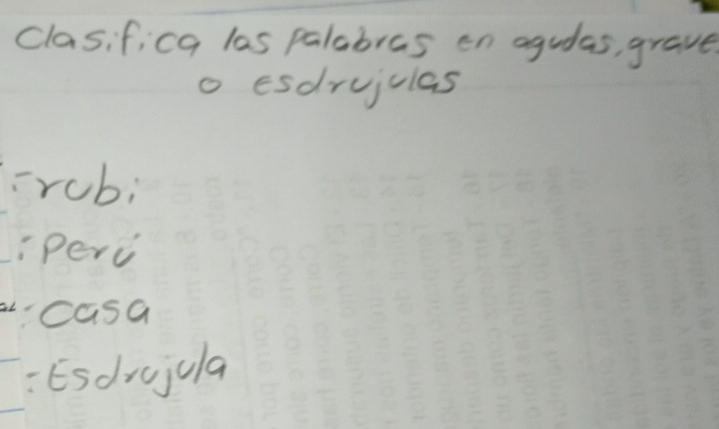 Clasifica las palabras en agudas, grave
o esdrujulas
rubi
Perú
casa
Esdrujula